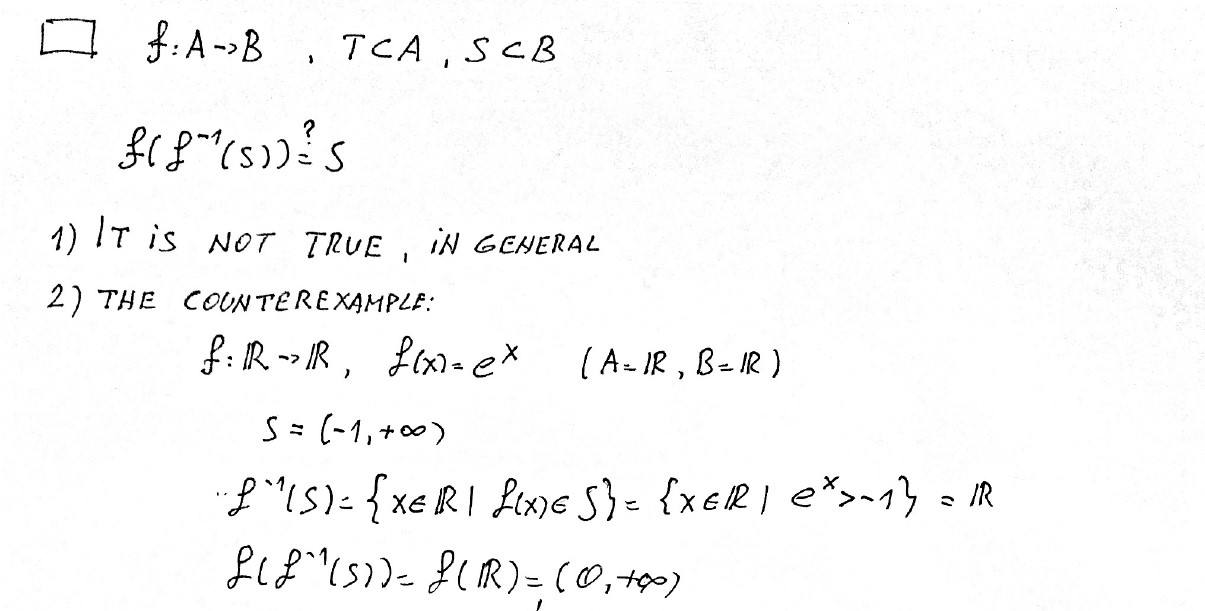 f: A → B , T ⊂ A , S ⊂ B
f(f⁻¹(S)) ≟ S
1) IT iS NOT TRUE, iN GENERAL
2) THE COUNTEREXAMPLE:
f: ℝ → ℝ, f(x) = eˣ (A = ℝ, B = ℝ)
S = (-1, +∞)
f⁻¹(S) = {x ∈ ℝ | f(x) ∈ S} = {x ∈ ℝ | eˣ > -1} = ℝ
f(f⁻¹(S)) = f(ℝ) = (0, +∞)